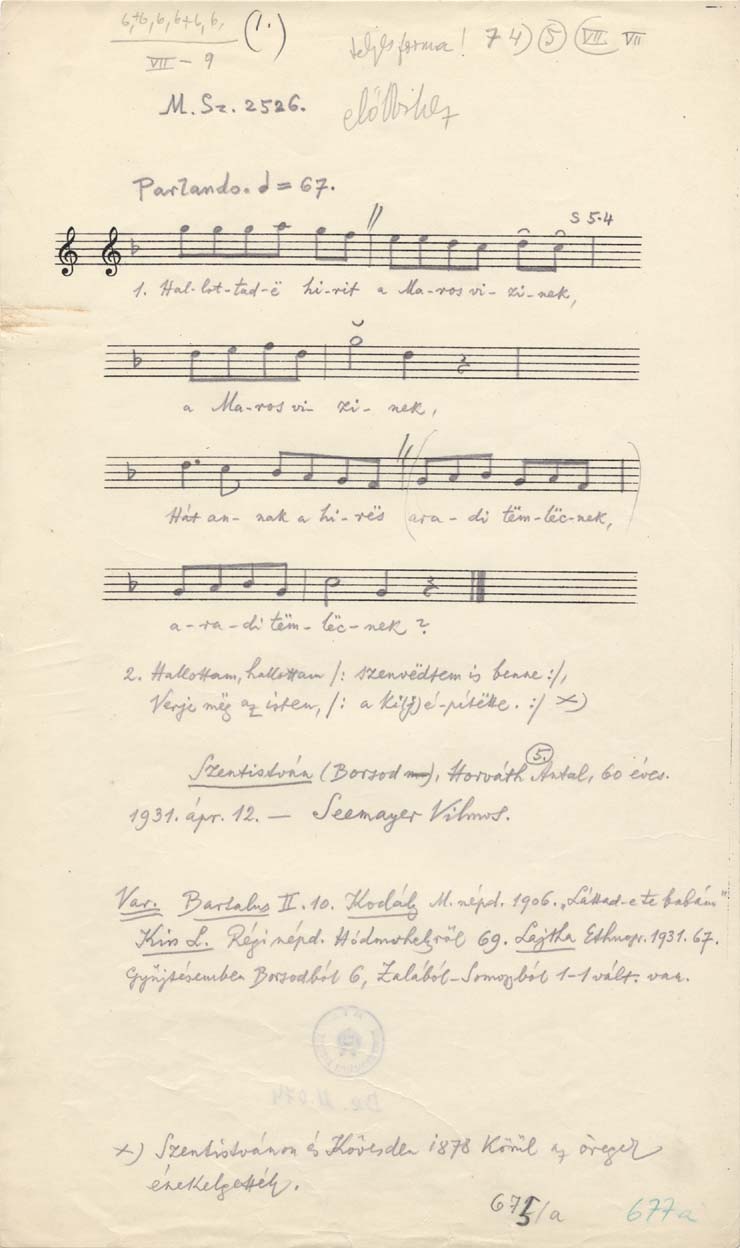 6,+6, 6, 6+6, 6, (1.)
VII – 9
teljes forma! 7 4) 5 VII VII
M. Sz. 2526.
előbbihez
Parlando. = 67.
S 5.4
1. Hal-lot-tad-ë hi-rit a Ma-ros vi-zi-nek,
a Ma-ros vi-zi-nek,
Hát an-nak a hi-rës (ara-di tëm-lëc-nek,)
a-ra-di tëm-lëc-nek?
2. Hallottam, hallottam /: szenvedtem is benne :/,
Verje mëg az isten, /: a ki(j) é-pítëtte. :/ ×)
Szentistván (Borsod), Horváth Antal, 60 éves.
5.
1931. ápr. 12. — Seemayer Vilmos.
Var. Bartalus II. 10. Kodály M. népd. 1906. „Láttad-e te babám"
Kiss L. Régi népd. Hódmvhelyről 69. Lajtha Ethnogr. 1931. 67.
Gyűjtésemben Borsodból 6, Zalából-Somogyból 1-1 vált. van.
×) Szentistvánon és Kövesden 1878 körül az öregek
énekelgették.
675/a 677a